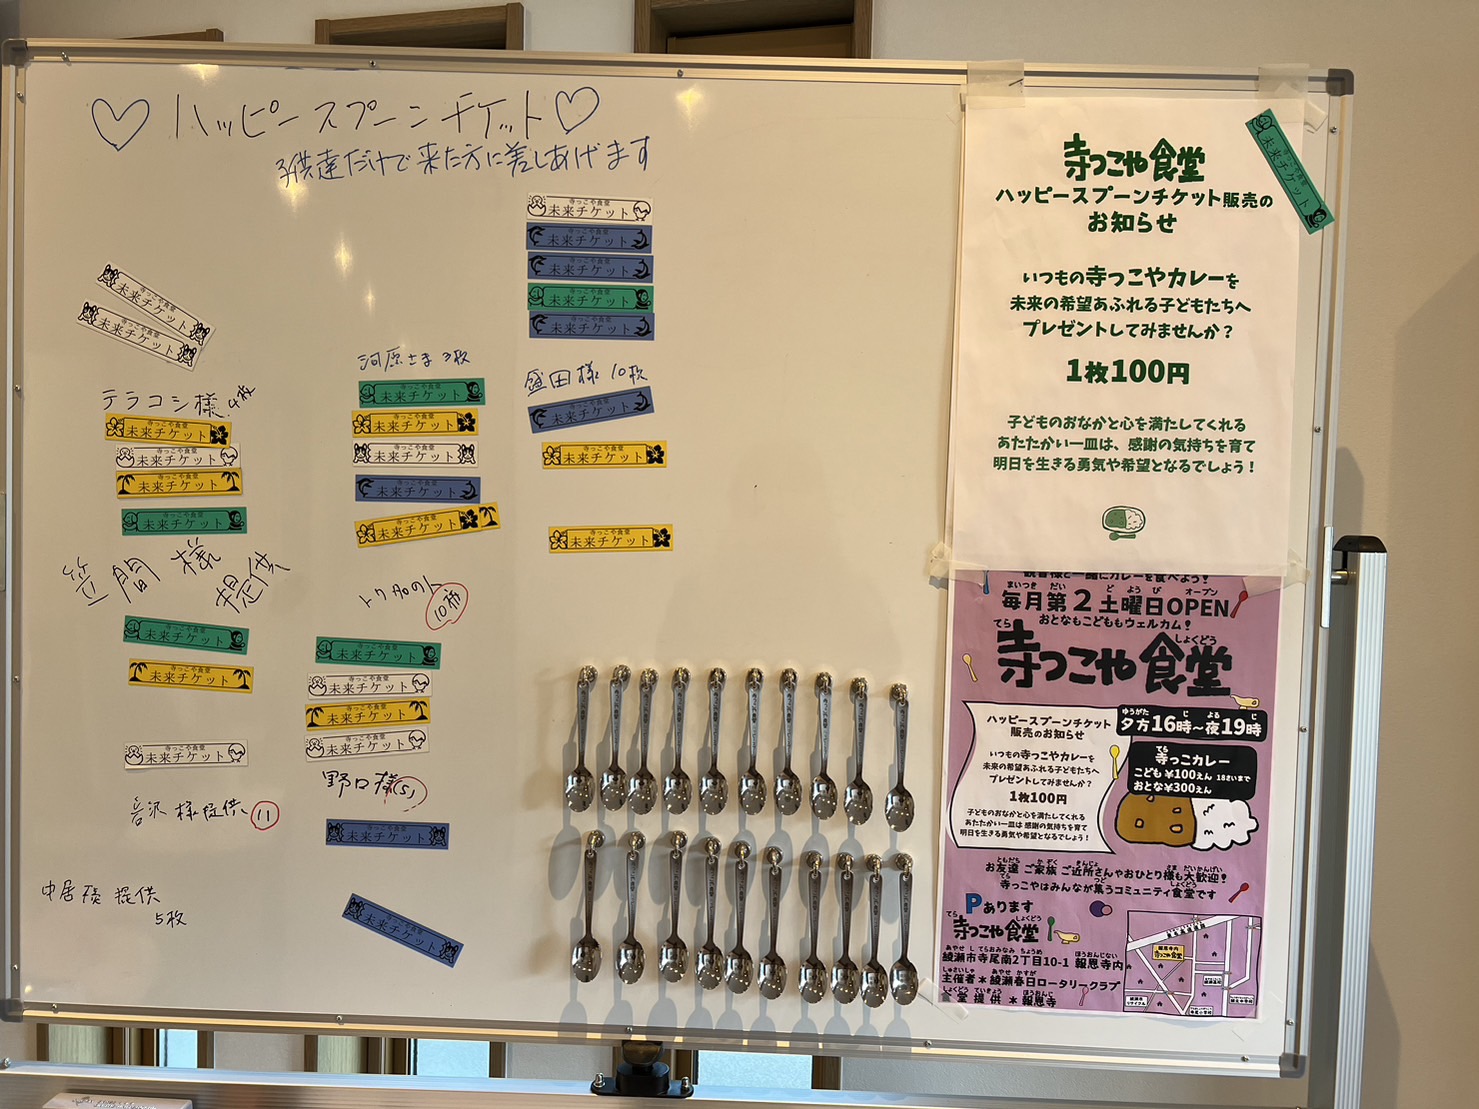 ♡ハッピースプーンチケット♡
子供達だけで来た方に差しあげます
寺っこや食堂
未来チケット
寺っこや食堂
未来チケット
寺っこや食堂
未来チケット
寺っこや食堂
未来チケット
寺っこや食堂
未来チケット
寺っこや食堂
未来チケット
寺っこや食堂
未来チケット
テラコシ様 4枚
寺っこや食堂
未来チケット
寺っこや食堂
未来チケット
寺っこや食堂
未来チケット
寺っこや食堂
未来チケット
笠間様
提供
寺っこや食堂
未来チケット
寺っこや食堂
未来チケット
寺っこや食堂
未来チケット
様提供 11
中居様 提供
5枚
河原さま 3枚
寺っこや食堂
未来チケット
寺っこや食堂
未来チケット
寺っこや食堂
未来チケット
寺っこや食堂
未来チケット
寺っこや食堂
未来チケット
10枚
寺っこや食堂
未来チケット
寺っこや食堂
未来チケット
寺っこや食堂
未来チケット
寺っこや食堂
未来チケット
野口様(5)
寺っこや食堂
未来チケット
寺っこや食堂
未来チケット
盛田様 10枚
寺っこや食堂
未来チケット
寺っこや食堂
未来チケット
寺っこや食堂
未来チケット
寺っこや食堂
未来チケット
寺っこや食堂
ハッピースプーンチケット販売の
お知らせ
いつもの寺っこやカレーを
未来の希望あふれる子どもたちへ
プレゼントしてみませんか？
1枚100円
子どものおなかと心を満たしてくれる
あたたかい一皿は、感謝の気持ちを育て
明日を生きる勇気や希望となるでしょう！
親御様と一緒にカレーを食べよう！
まいつき だい ど よう び オープン
毎月第2土曜日OPEN
おとなもこどももウェルカム！
てら しょくどう
寺っこや食堂
ハッピースプーンチケット
販売のお知らせ
いつもの寺っこやカレーを
未来の希望あふれる子どもたちへ
プレゼントしてみませんか？
1枚100円
子どものおなかと心を満たしてくれる
あたたかい一皿は 感謝の気持ちを育て
明日を生きる勇気や希望となるでしょう！
ゆうがた じ よる じ
夕方16時〜夜19時
てら
寺っこカレー
こども ¥100えん 18さいまで
おとな¥300えん
ともだち か ぞく きんじょ さま だいかんげい
お友達 ご家族 ご近所さんやおひとり様も大歓迎！
てら つど しょくどう
寺っこやはみんなが集うコミュニティ食堂です
Pあります
てら しょくどう
寺っこや食堂
あやせ し てらおみなみ ちょうめ ほうおんじない
綾瀬市寺尾南2丁目10-1 報恩寺内
しゅさいしゃ あやせ かすが
主催者＊綾瀬春日ロータリークラブ
しょくどう ていきょう ほうおんじ
食堂提供＊報恩寺
報恩寺内
寺っこや食堂